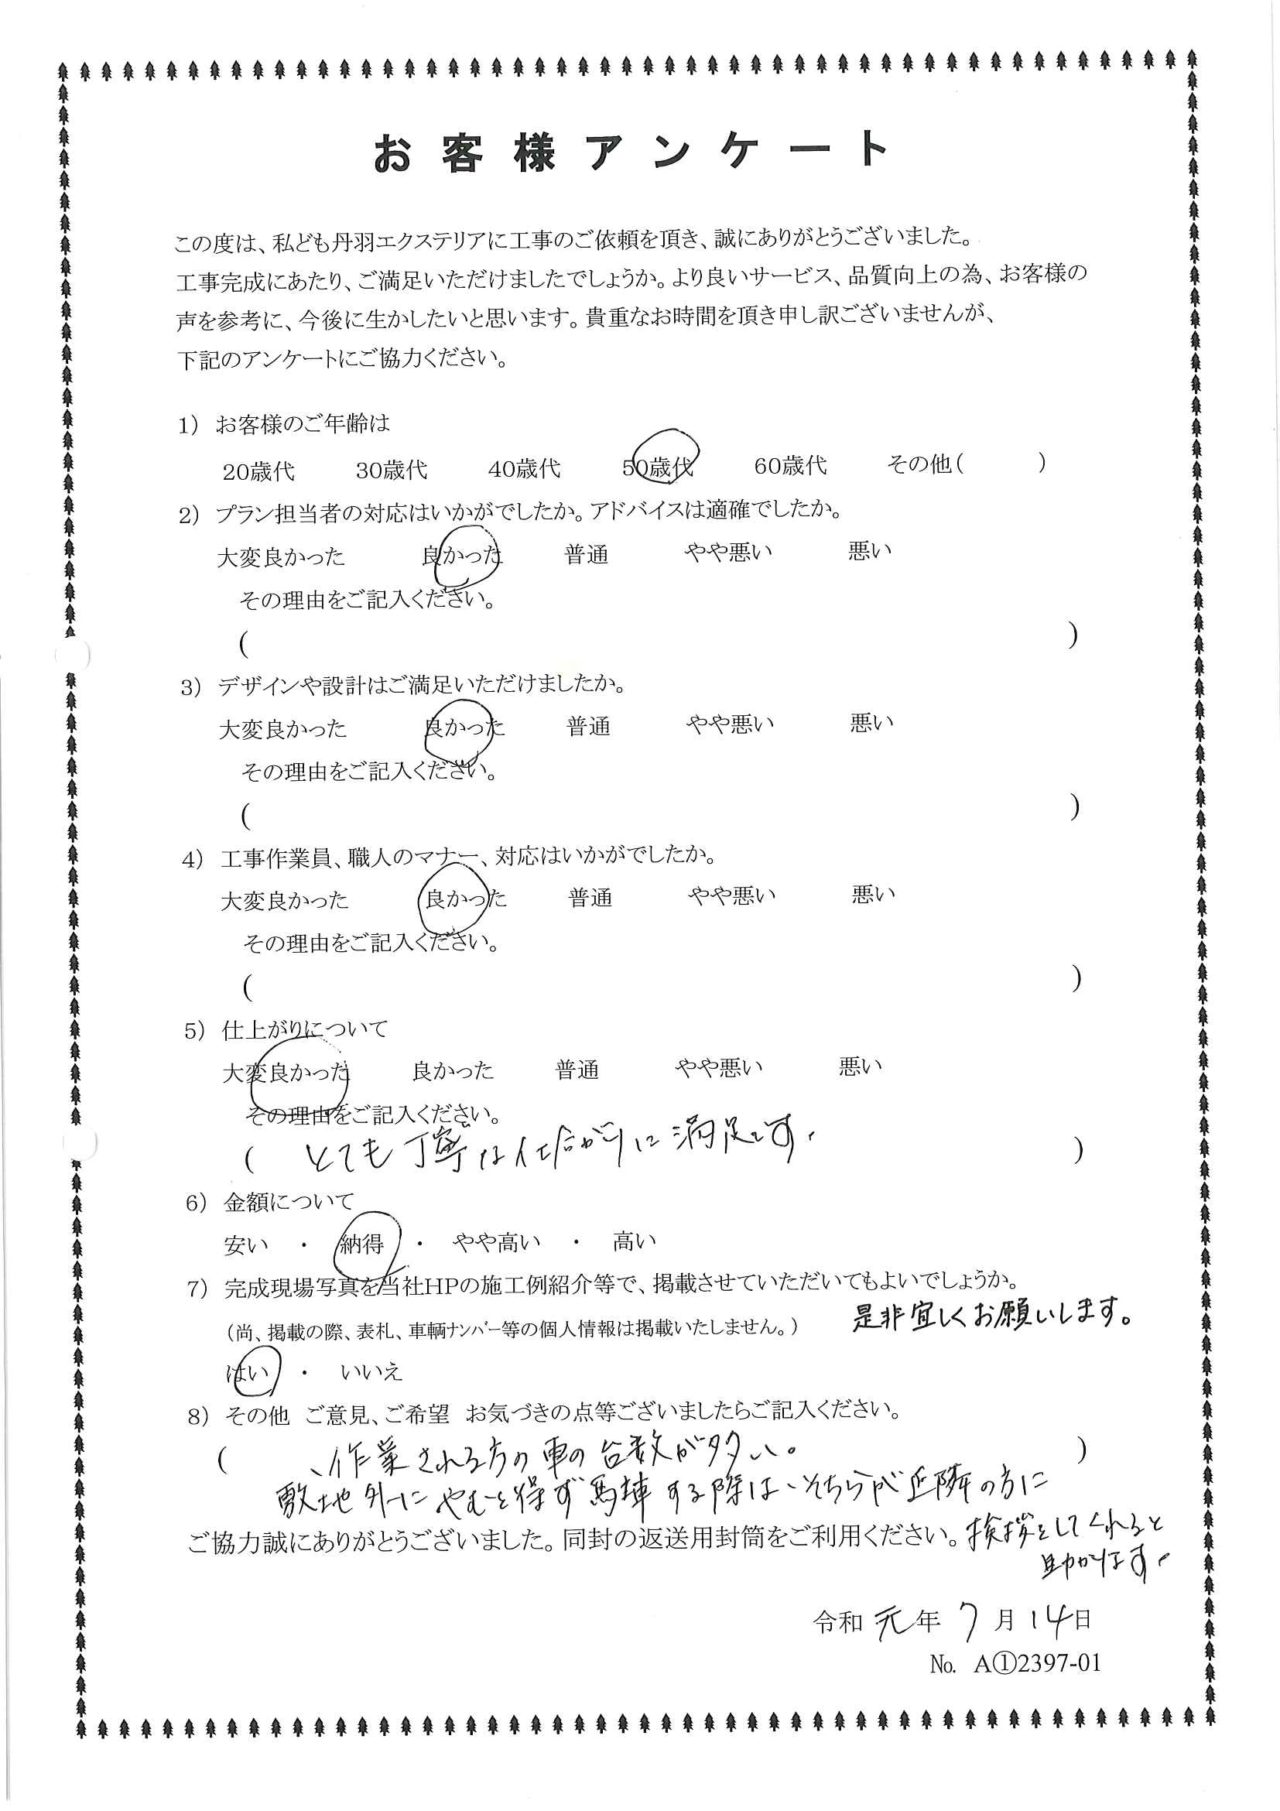 お客様アンケート
この度は、私ども丹羽エクステリアに工事のご依頼を頂き、誠にありがとうございました。
工事完成にあたり、ご満足いただけましたでしょうか。より良いサービス、品質向上の為、お客様の
声を参考に、今後に生かしたいと思います。貴重なお時間を頂き申し訳ございませんが、
下記のアンケートにご協力ください。
1) お客様のご年齢は
20歳代 30歳代 40歳代 50歳代 60歳代 その他( )
2) プラン担当者の対応はいかがでしたか。アドバイスは適確でしたか。
大変良かった 良かった 普通 やや悪い 悪い
その理由をご記入ください。
( )
3) デザインや設計はご満足いただけましたか。
大変良かった 良かった 普通 やや悪い 悪い
その理由をご記入ください。
( )
4) 工事作業員、職人のマナー、対応はいかがでしたか。
大変良かった 良かった 普通 やや悪い 悪い
その理由をご記入ください。
( )
5) 仕上がりについて
大変良かった 良かった 普通 やや悪い 悪い
その理由をご記入ください。
( とても丁寧な仕上がりに満足です。 )
6) 金額について
安い ・ 納得 ・ やや高い ・ 高い
7) 完成現場写真を当社HPの施工例紹介等で、掲載させていただいてもよいでしょうか。
(尚、掲載の際、表札、車輌ナンバー等の個人情報は掲載いたしません。) 是非宜しくお願いします。
はい ・ いいえ
8) その他 ご意見、ご希望 お気づきの点等ございましたらご記入ください。
( 、作業される方の車の台数が多い。 )
敷地外にやむを得ず駐車する際は、そちらが近隣の方に
ご協力誠にありがとうございました。同封の返送用封筒をご利用ください。 挨拶をしてくれると
助かります。
令和 元 年 7 月 14 日
No. A①2397-01